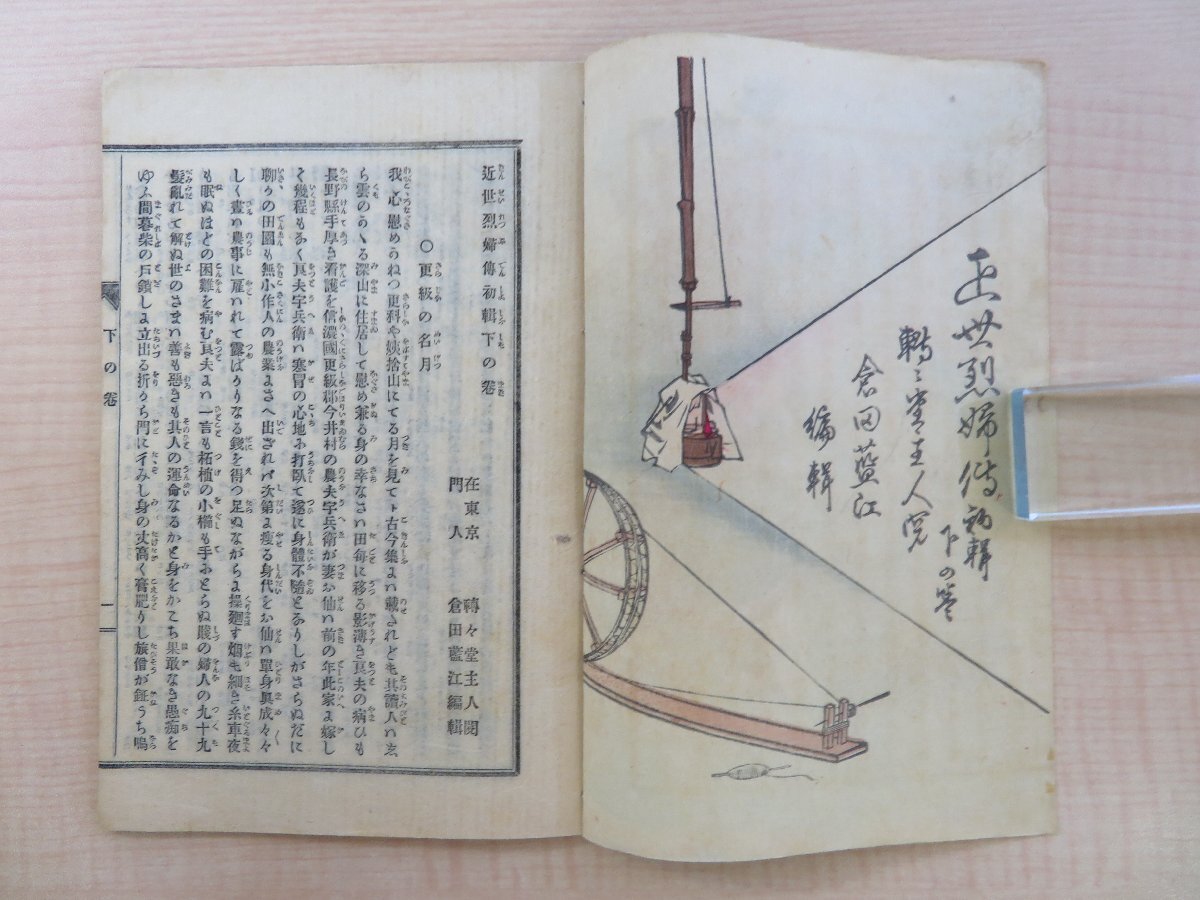 近世烈婦傳初輯
下の巻
轉々堂主人閲
倉田藍江
編輯
近世烈婦傳初輯下の卷
在東京 轉々堂主人閲
門人 倉田藍江編輯
○更級の名月
我心慰めかねつ更科や姨捨山にてる月を見てト古今集よハ載されども其讀人ハゑ
ら雲のかゝる深山に住居して慰め兼る身の幸なさハ田毎に移る影薄き良夫の病ひも
長野縣手厚き看護を信濃國更級郡今井村の農夫字兵衛が妻お仙ハ前の年此家よ嫁し
て幾程もなく良夫字兵衛ハ寒冒の心地ふ打臥て遂に身體不隨となりしがさらぬだに
聊かの田園も無小作人の農業よさへ出ざれバ次第よ瘦る身代をお仙ハ單身眞成々々
しく晝ハ農事に雇ハれて露ばかりなる錢を得つ足ぬながらよ操廻す烟も細き糸車夜
も眠ぬほどの困難を病む良夫よハ一言も柘植の小櫛も手ふとらぬ賤の婦人の九十九
髮亂れて解ぬ世のさまハ善も惡きも其人の運命なるかと身をかこち果敢なき愚痴を
ゆふ間暮柴の戸鎖しよ立出る折から門にイみし身の丈高く膏肥りし旅僧が鉦うち鳴
下の卷
一